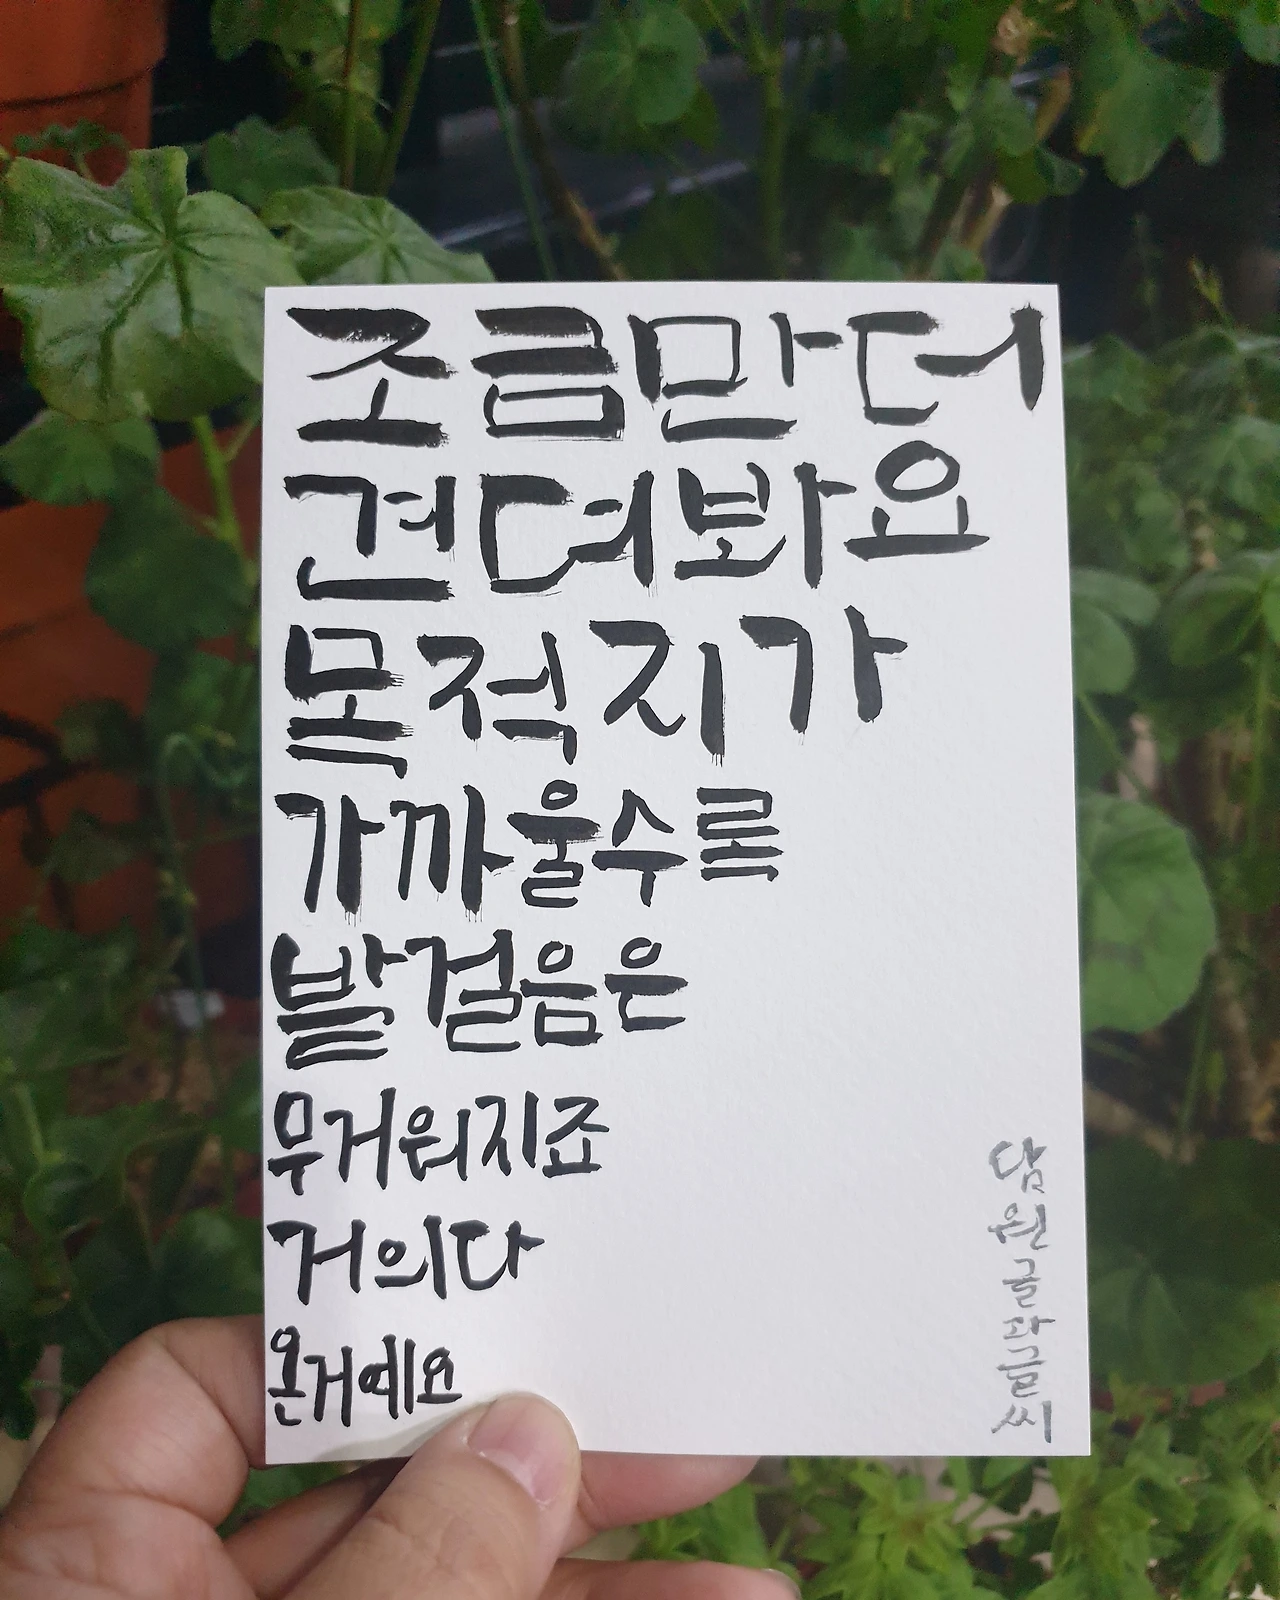 조금만 더
견뎌봐요
목적지가
가까울수록
발걸음은
무거워지죠
거의 다
온거예요
담원글과글씨